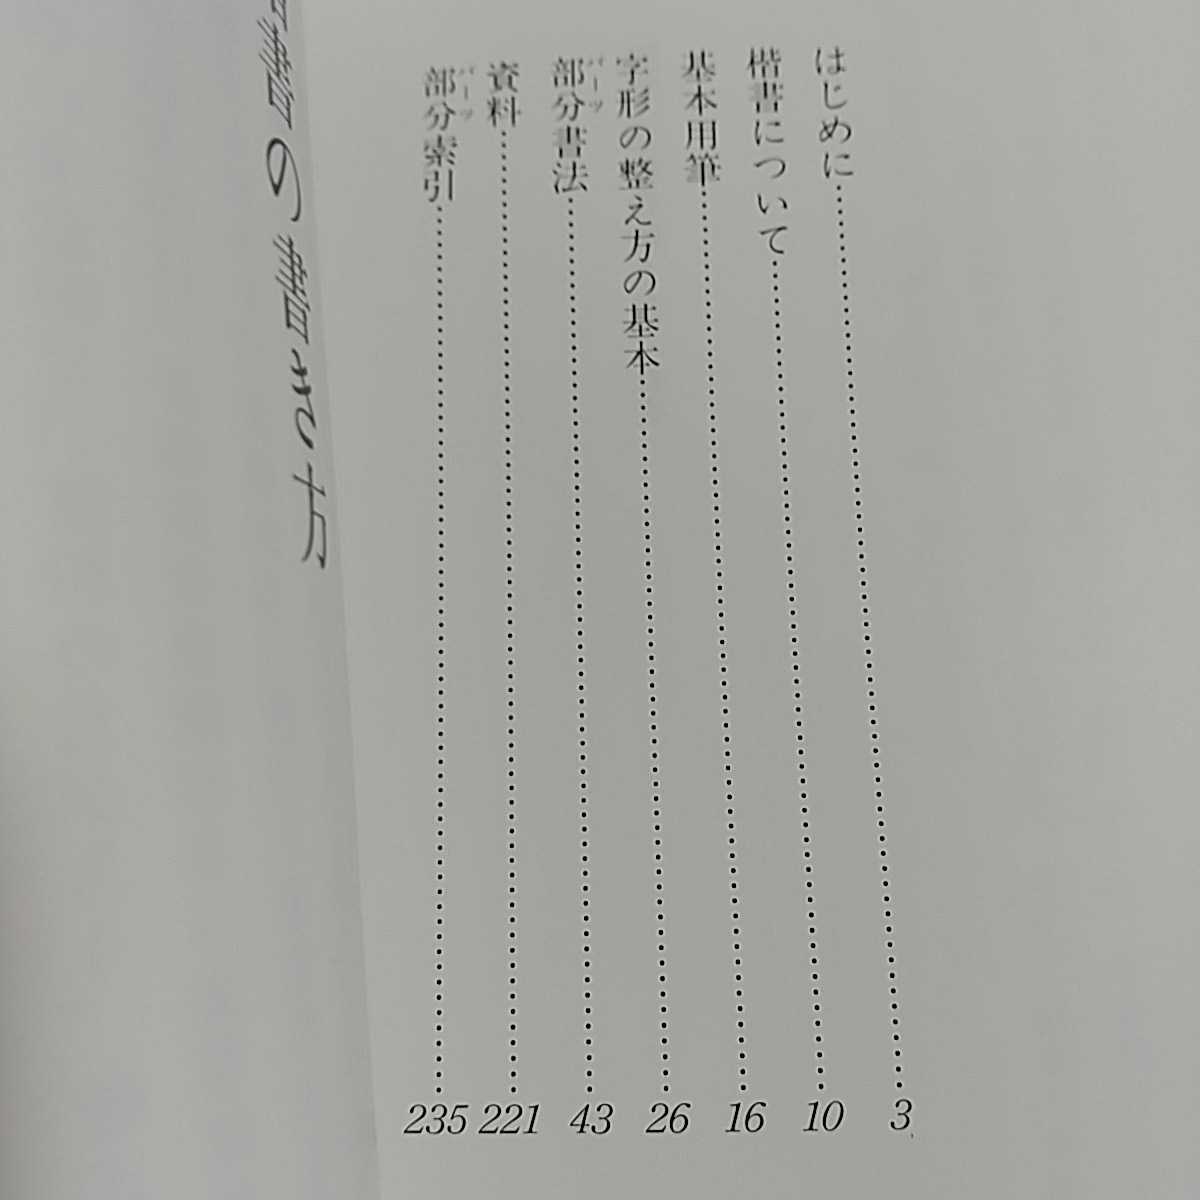 はじめに……3
楷書について……10
基本用筆……16
字形の整え方の基本……26
部分書法……43
パーツ
資料……221
部分索引……235
パーツ